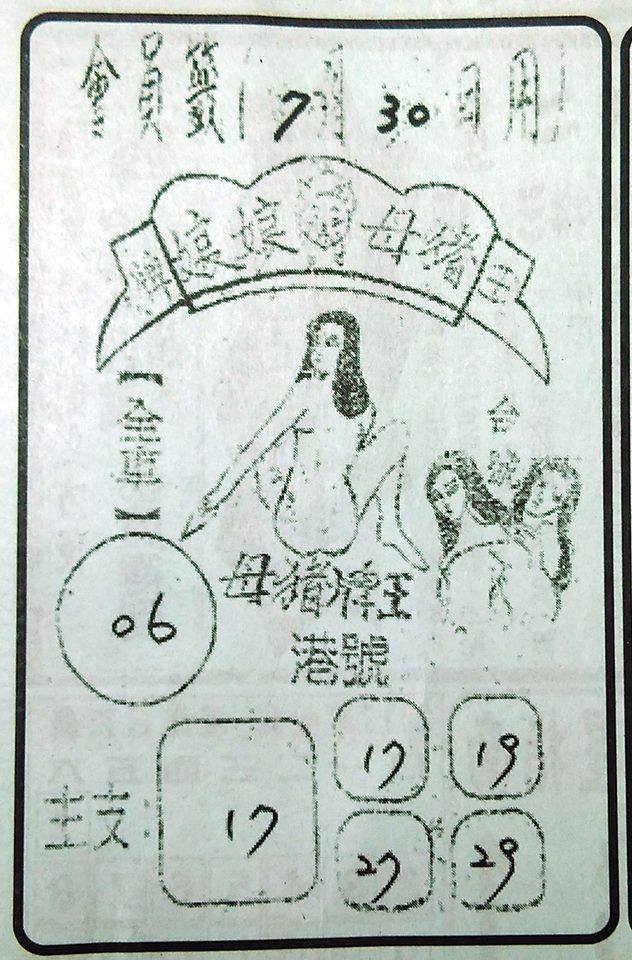 會員籤 7月 30日用
牌 娘娘 母豬 王
【全車】
台號
06
母豬牌王
港號
主支:
17
17 19
27 29